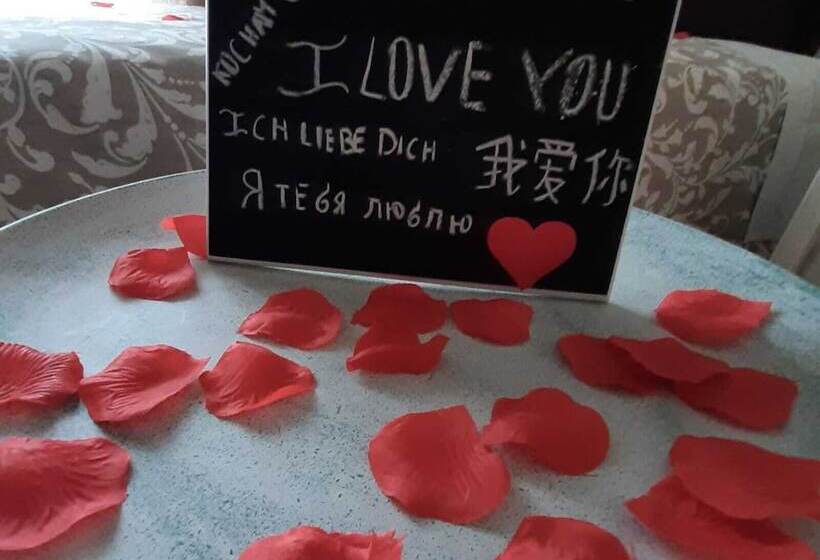 KOCHAM
I LOVE YOU
ICH LIEBE DICH
我爱你
Я ТЕБЯ ЛЮБЛЮ